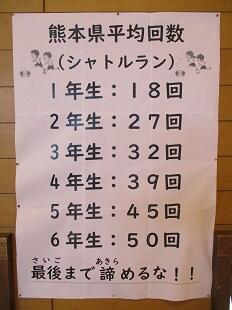 熊本県平均回数
(シャトルラン)
1年生：18回
2年生：27回
3年生：32回
4年生：39回
5年生：45回
6年生：50回
さいご あきら
最後まで諦めるな！！